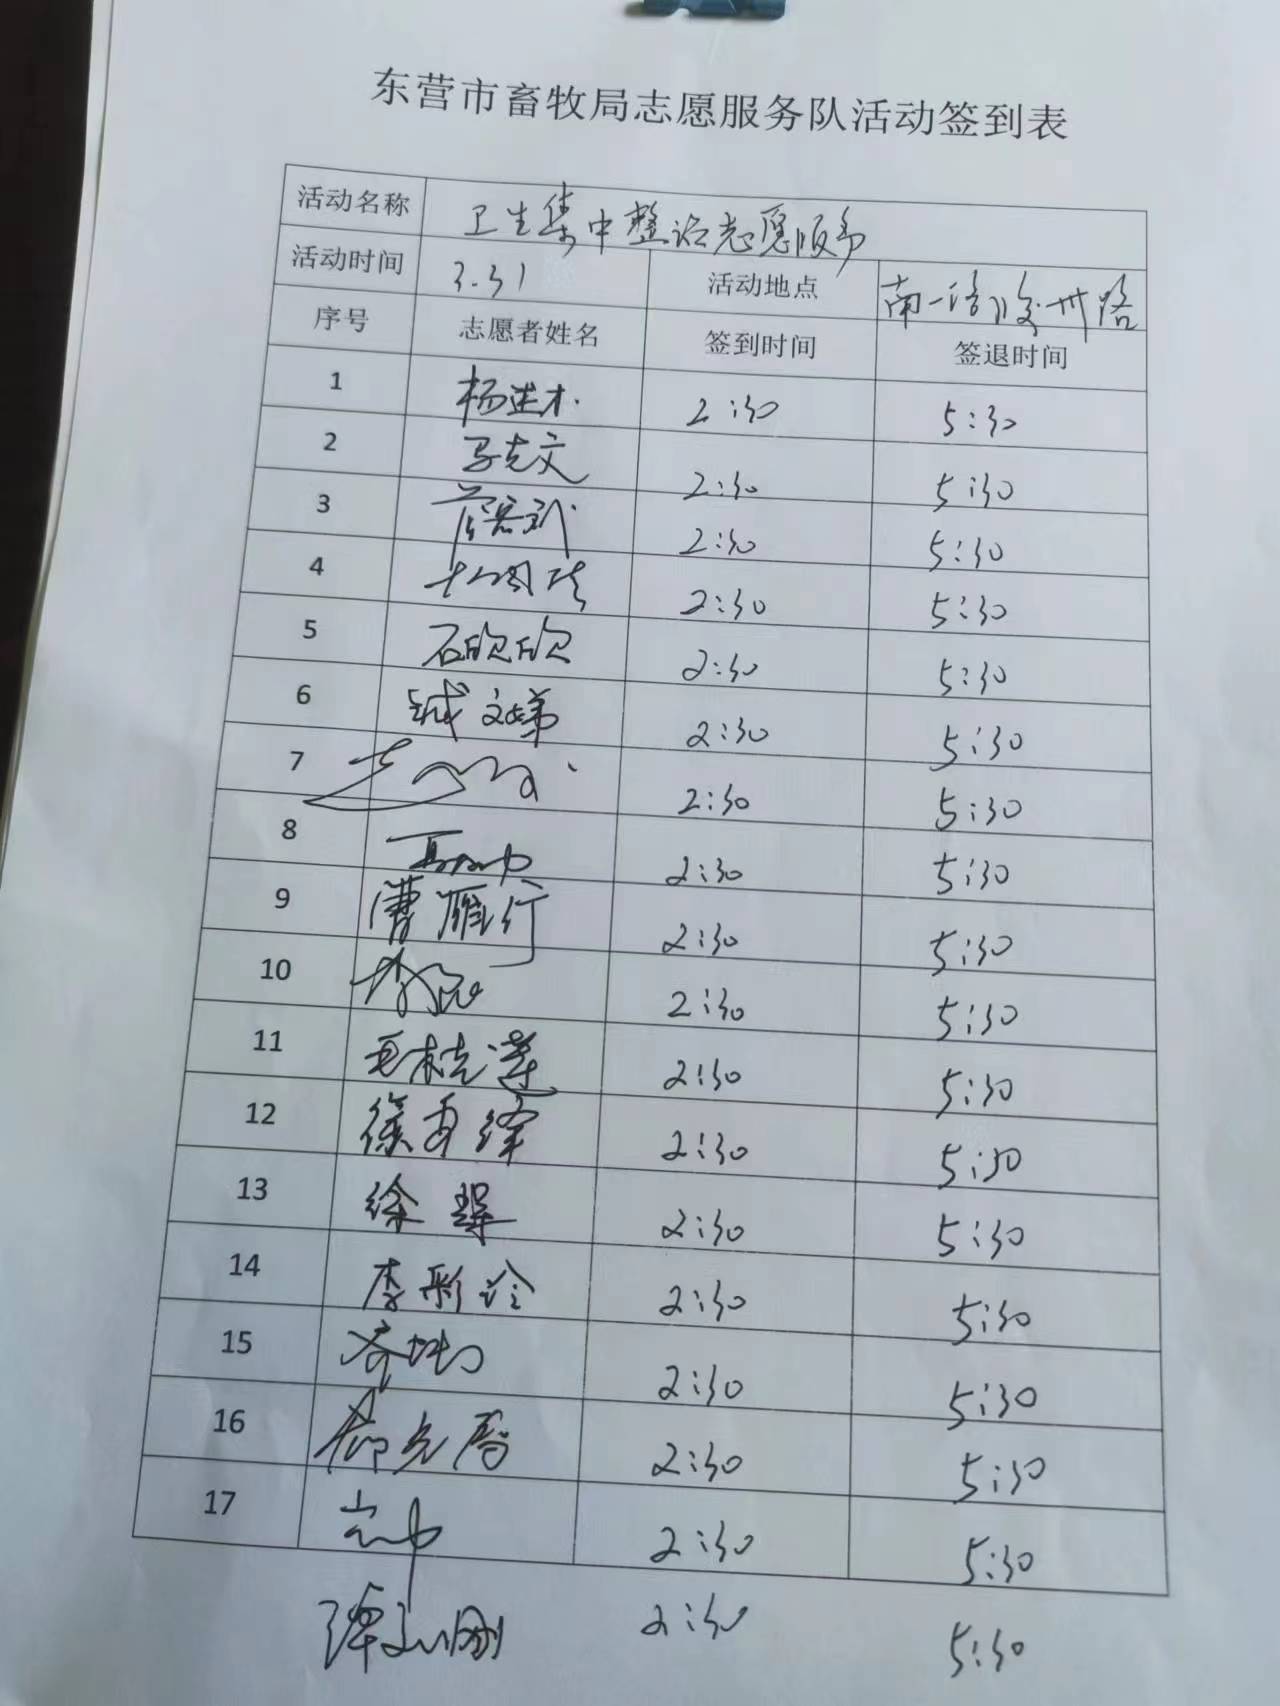 东营市畜牧局志愿服务队活动签到表
活动名称 卫生集中整治志愿服务
活动时间 3.31 活动地点 南一路 胶州路
序号 志愿者姓名 签到时间 签退时间
1 杨进才 2:30 5:30
2 马克文 2:30 5:30
3 2:30 5:30
4 2:30 5:30
5 石欣欣 2:30 5:30
6 文娣 2:30 5:30
7 2:30 5:30
8 2:30 5:30
9 曹雁行 2:30 5:30
10 2:30 5:30
11 毛桂莲 2:30 5:30
12 徐 2:30 5:30
13 徐 2:30 5:30
14 李彩玲 2:30 5:30
15 2:30 5:30
16 2:30 5:30
17 2:30 5:30
谭 刚 2:30 5:30